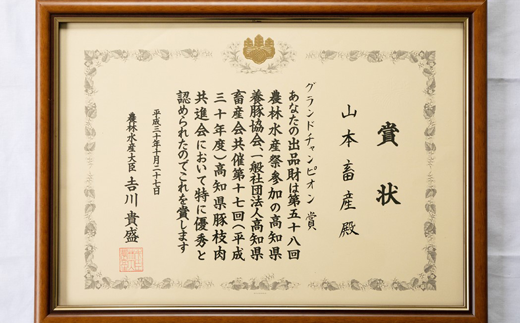 賞状
山本畜産殿
グランドチャンピオン賞
あなたの出品財は第五十八回
農林水産祭参加の高知県
養豚協会、一般社団法人高知県
畜産会共催第十七回(平成
三十年度)高知県豚枝肉
共進会において特に優秀と
認められたのでこれを賞します
平成三十年十月二十七日
農林水産大臣 𠮷川貴盛